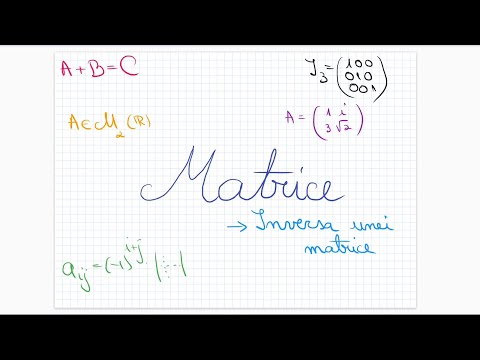 A + B = C
I₃ = (1 0 0
0 1 0
0 0 1)
A ∈ M₂ (ℝ)
A = (1 i
3 √2)
Matrice
→ Inversa unei
matrice
a_ij = (-1)^i+j · | |